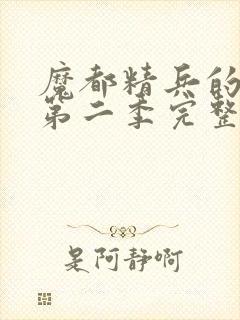 魔都精兵的
第二季完整
是阿静啊